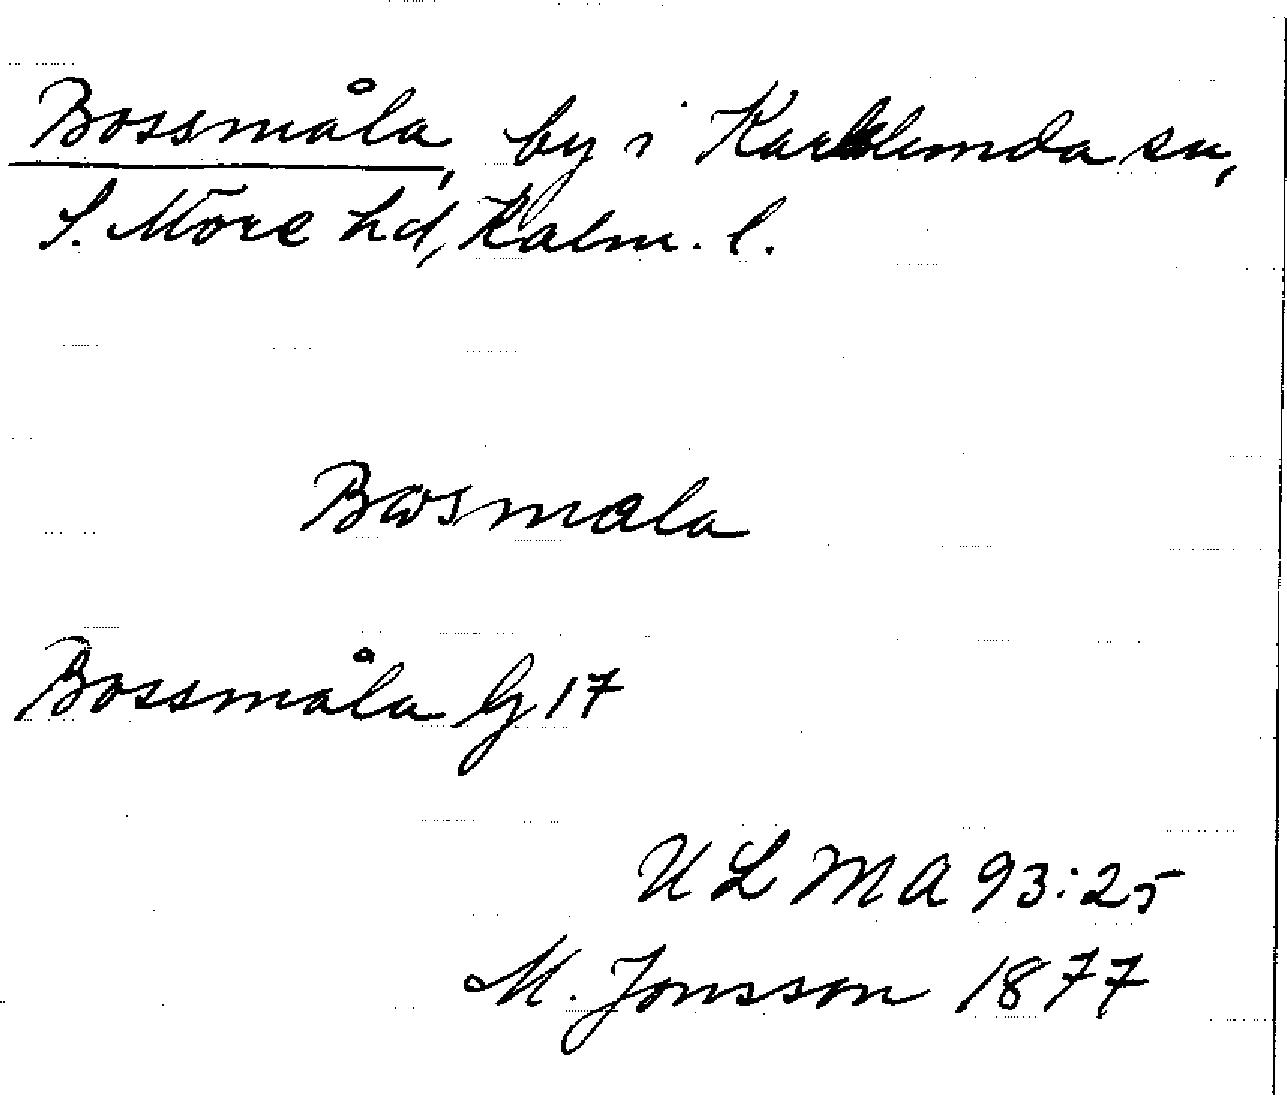 Bossmåla, by i Karlslunda sn,
S. Möre hd, Kalm. l.
Bosmala
Bossmåla G 17
ULMA 93:25
M. Jonsson 1877